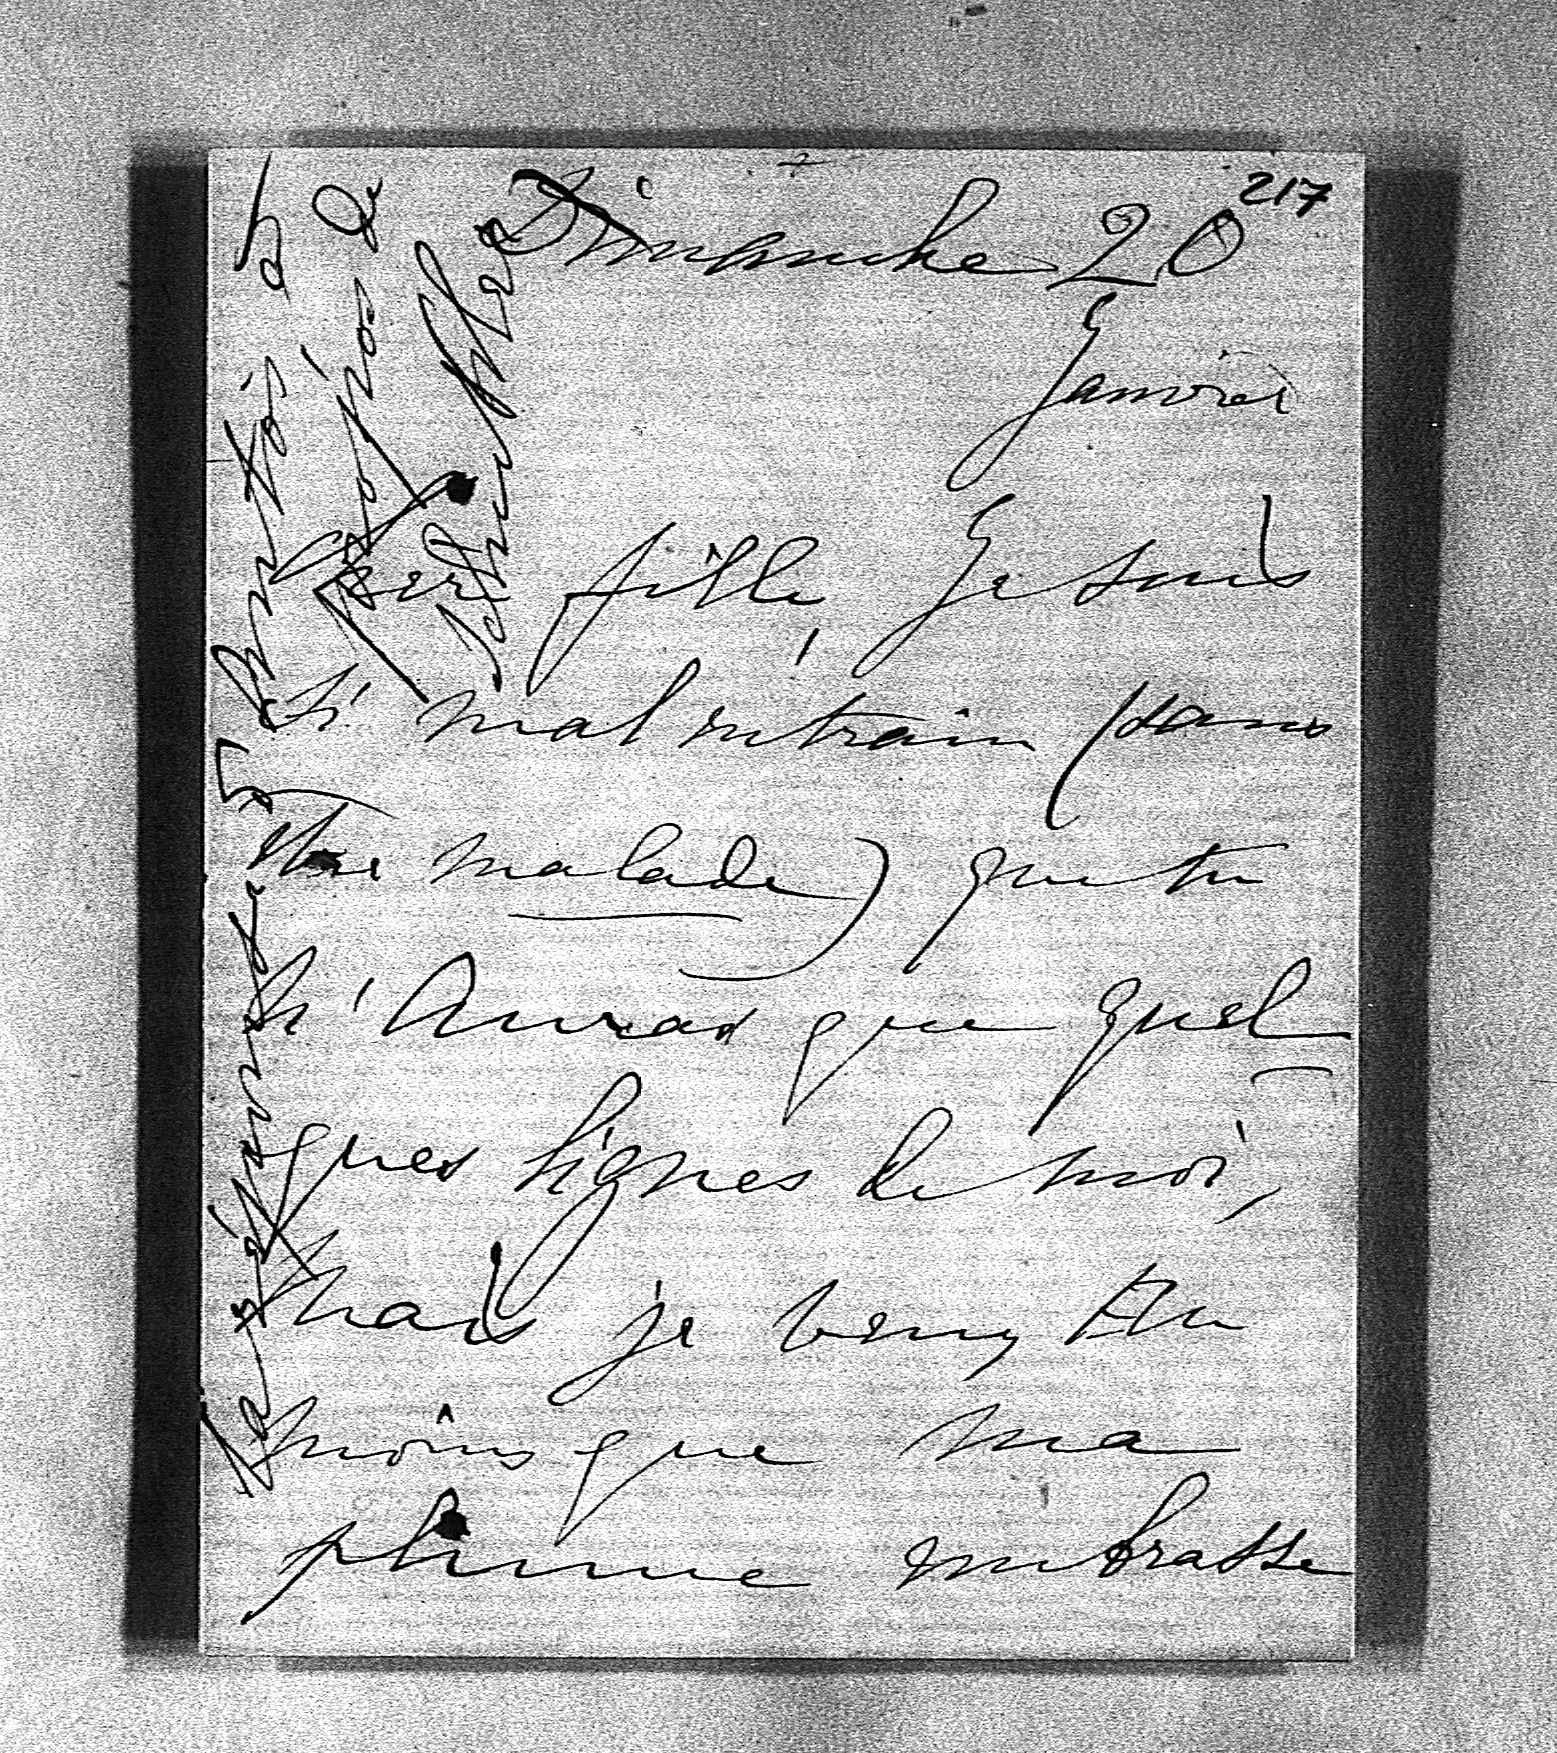 217
Dimanche 20
Janvier
Chere fille, Je suis
si mal entrain (sans
être malade) que tu
n'auras que quel
ques lignes de moi,
mais je veux au
moins que ma
plume embrasse
Ta réponse
à propos de